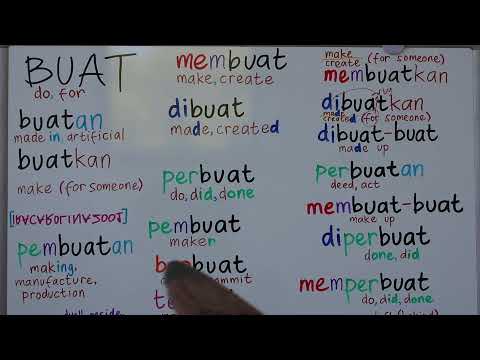 BUAT
do, for
buatan
made in, artificial
buatkan
make (for someone)
pembuatan
making,
manufacture,
production
membuat
make, create
dibuat
made, created
perbuat
do, did, done
pembuat
maker
buat
commit
make
create (for someone)
membuatkan
dibuatkan
made
created (for someone)
dibuat-buat
made up
perbuatan
deed, act
membuat-buat
make up
diperbuat
done, did
memperbuat
do, did, done